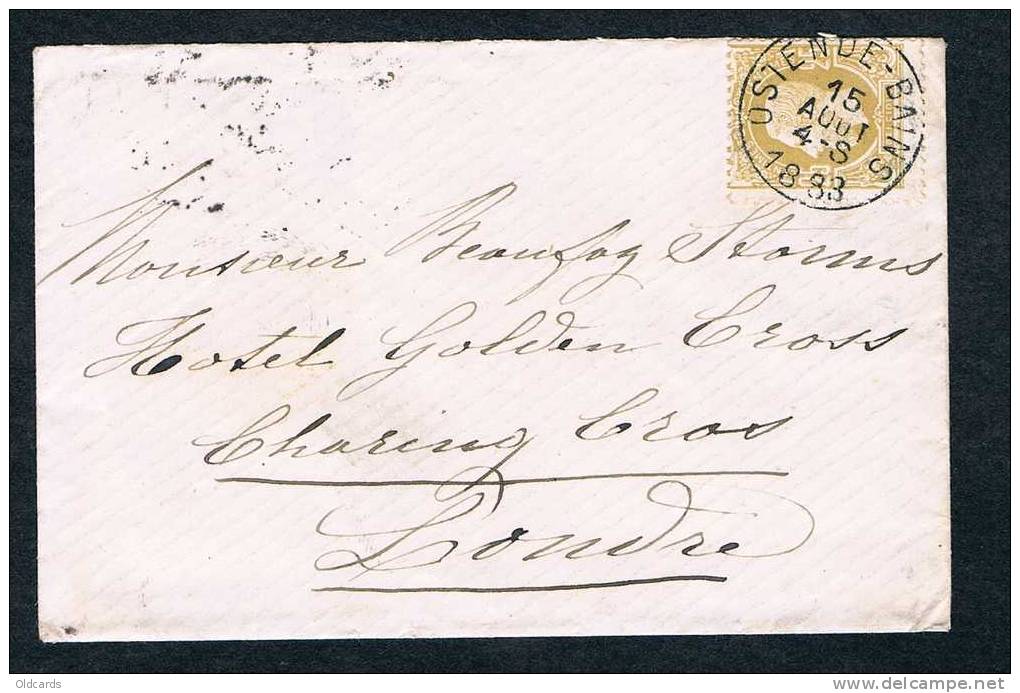 OSTENDE-BAINS
15
AOUT
4-S
1883
Monsieur Beaufoy Storms
Hotel Golden Cross
Charing Cros
Londre
Oldcards
www.delcampe.net